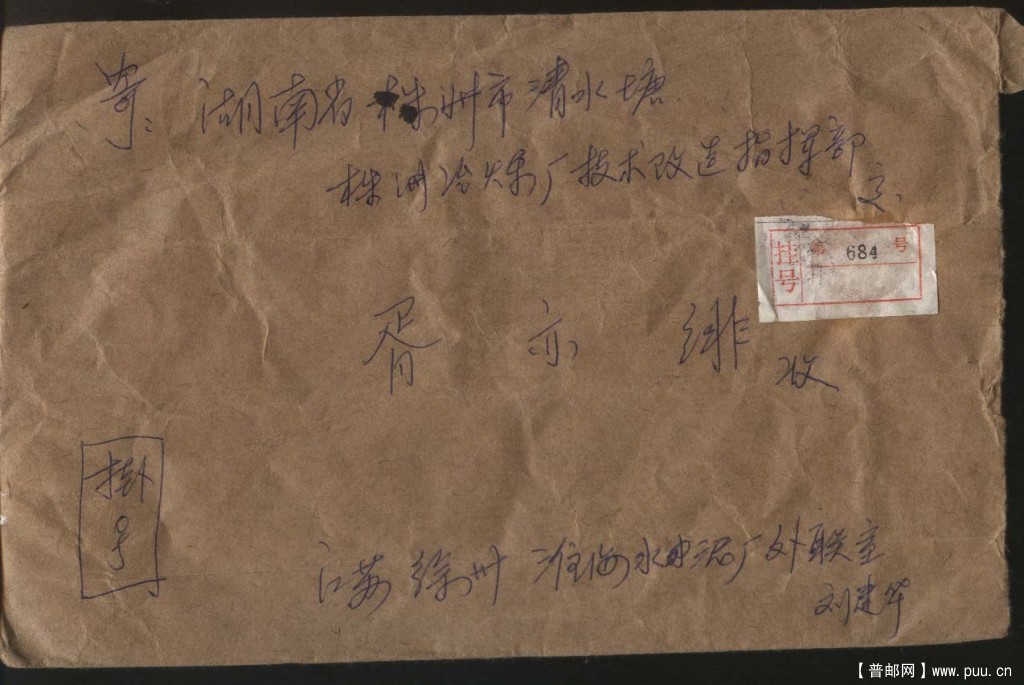 寄: 湖南省株洲市清水塘
株洲冶炼厂技术改造指挥部
挂号
第 684 号
胥 亦 绯
收
掛号
江苏徐州 淮海水泥厂外联室
刘建华
【普邮网】www.puu.cn